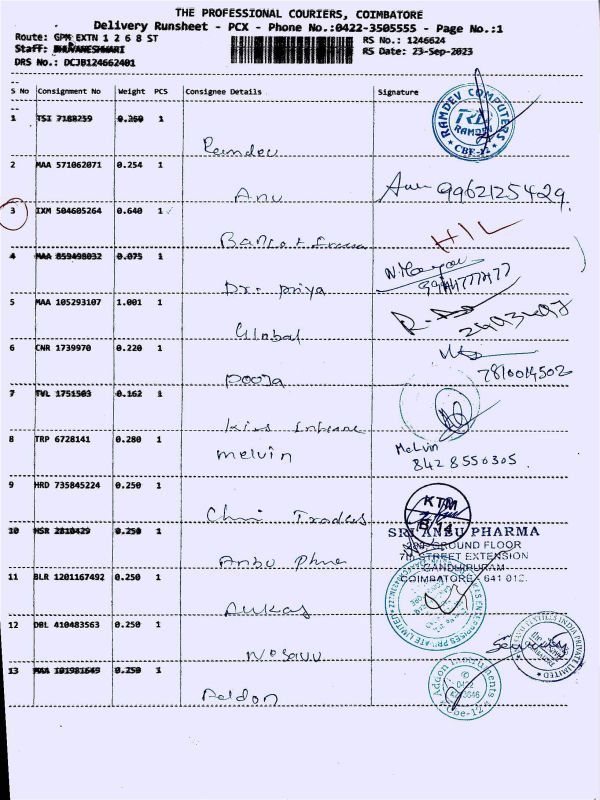 THE PROFESSIONAL COURIERS, COIMBATORE
Delivery Runsheet - PCX - Phone No.:0422-3505555 - Page No.:1
Route: GPM EXTN 1 2 6 8 ST RS No.: 1246624
Staff: BHUVANESHWARI RS Date: 23-Sep-2023
DRS No.: DCJB124662401
S No Consignment No Weight PCS Consignee Details Signature
1 TSI 7188259 0.260 1
Ramdev
RAMDEV COMPUTERS
RAMDEV
CBE-12
2 MAA 571062071 0.254 1
Anu
9962125429.
3 IXM 504605264 0.640 1
HIL
4 MAA 859498032 0.075 1
Dr. Priya
5 MAA 105293107 1.001 1
Global
6 CNR 1739970 0.220 1
Pooja
7810014502
7 TVL 1751503 0.162 1
8 TRP 6728141 0.280 1
melvin
Melvin
8428550305.
9 HRD 735845224 0.250 1
KTM
10 NSR 2810429 0.250 1
SRI ANBU PHARMA
GROUND FLOOR
7th STREET EXTENSION
GANDHIPURAM,
COIMBATORE - 641 012.
11 BLR 1201167492 0.250 1
12 DBL 410483563 0.250 1
Security
13 MAA 101981649 0.250 1
Addon
Addon Instruments
Coe-12